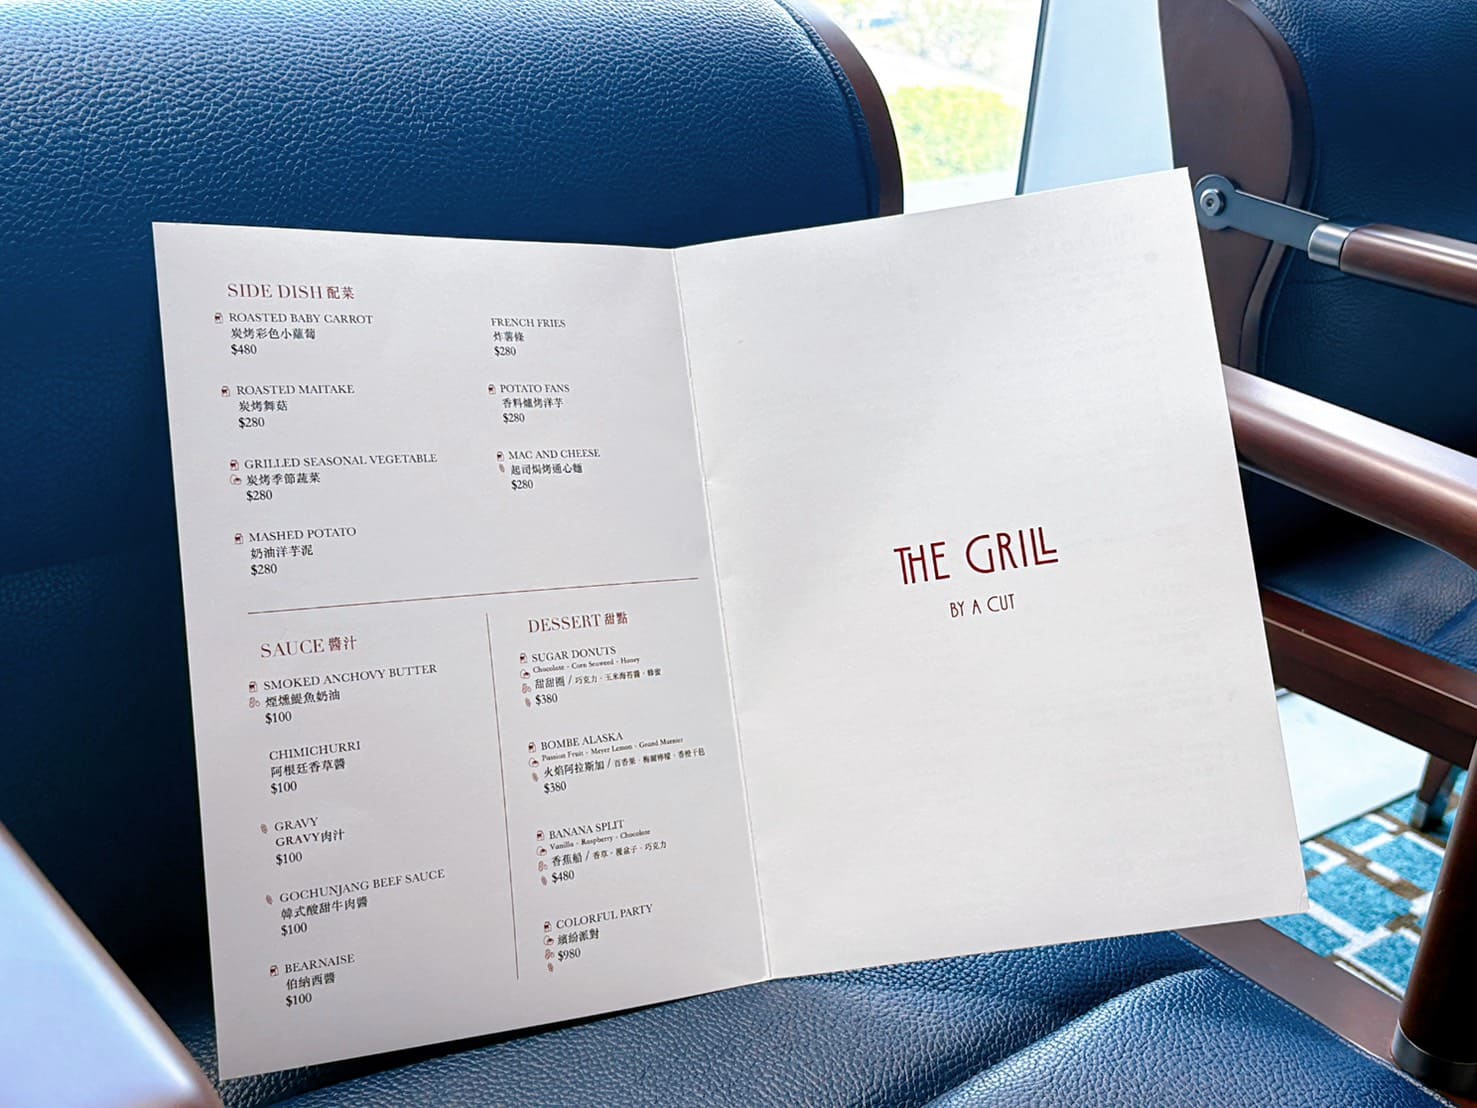 SIDE DISH 配菜
ROASTED BABY CARROT
炭烤彩色小蘿蔔
$480
ROASTED MAITAKE
炭烤舞菇
$280
GRILLED SEASONAL VEGETABLE
炭烤季節蔬菜
$280
MASHED POTATO
奶油洋芋泥
$280
FRENCH FRIES
炸薯條
$280
POTATO FANS
香料爐烤洋芋
$280
MAC AND CHEESE
起司焗烤通心麵
$280
SAUCE 醬汁
SMOKED ANCHOVY BUTTER
煙燻鯷魚奶油
$100
CHIMICHURRI
阿根廷香草醬
$100
GRAVY
GRAVY肉汁
$100
GOCHUNJANG BEEF SAUCE
韓式酸甜牛肉醬
$100
BEARNAISE
伯納西醬
$100
DESSERT 甜點
SUGAR DONUTS
Chocolate - Corn Seaweed - Honey
甜甜圈 / 巧克力・玉米海苔醬・蜂蜜
$380
BOMBE ALASKA
Passion Fruit - Meyer Lemon - Grand Marnier
火焰阿拉斯加 / 百香果・梅爾檸檬・香橙干邑
$380
BANANA SPLIT
Vanilla - Raspberry - Chocolate
香蕉船 / 香草・覆盆子・巧克力
$480
COLORFUL PARTY
繽紛派對
$980
THE GRILL
BY A CUT